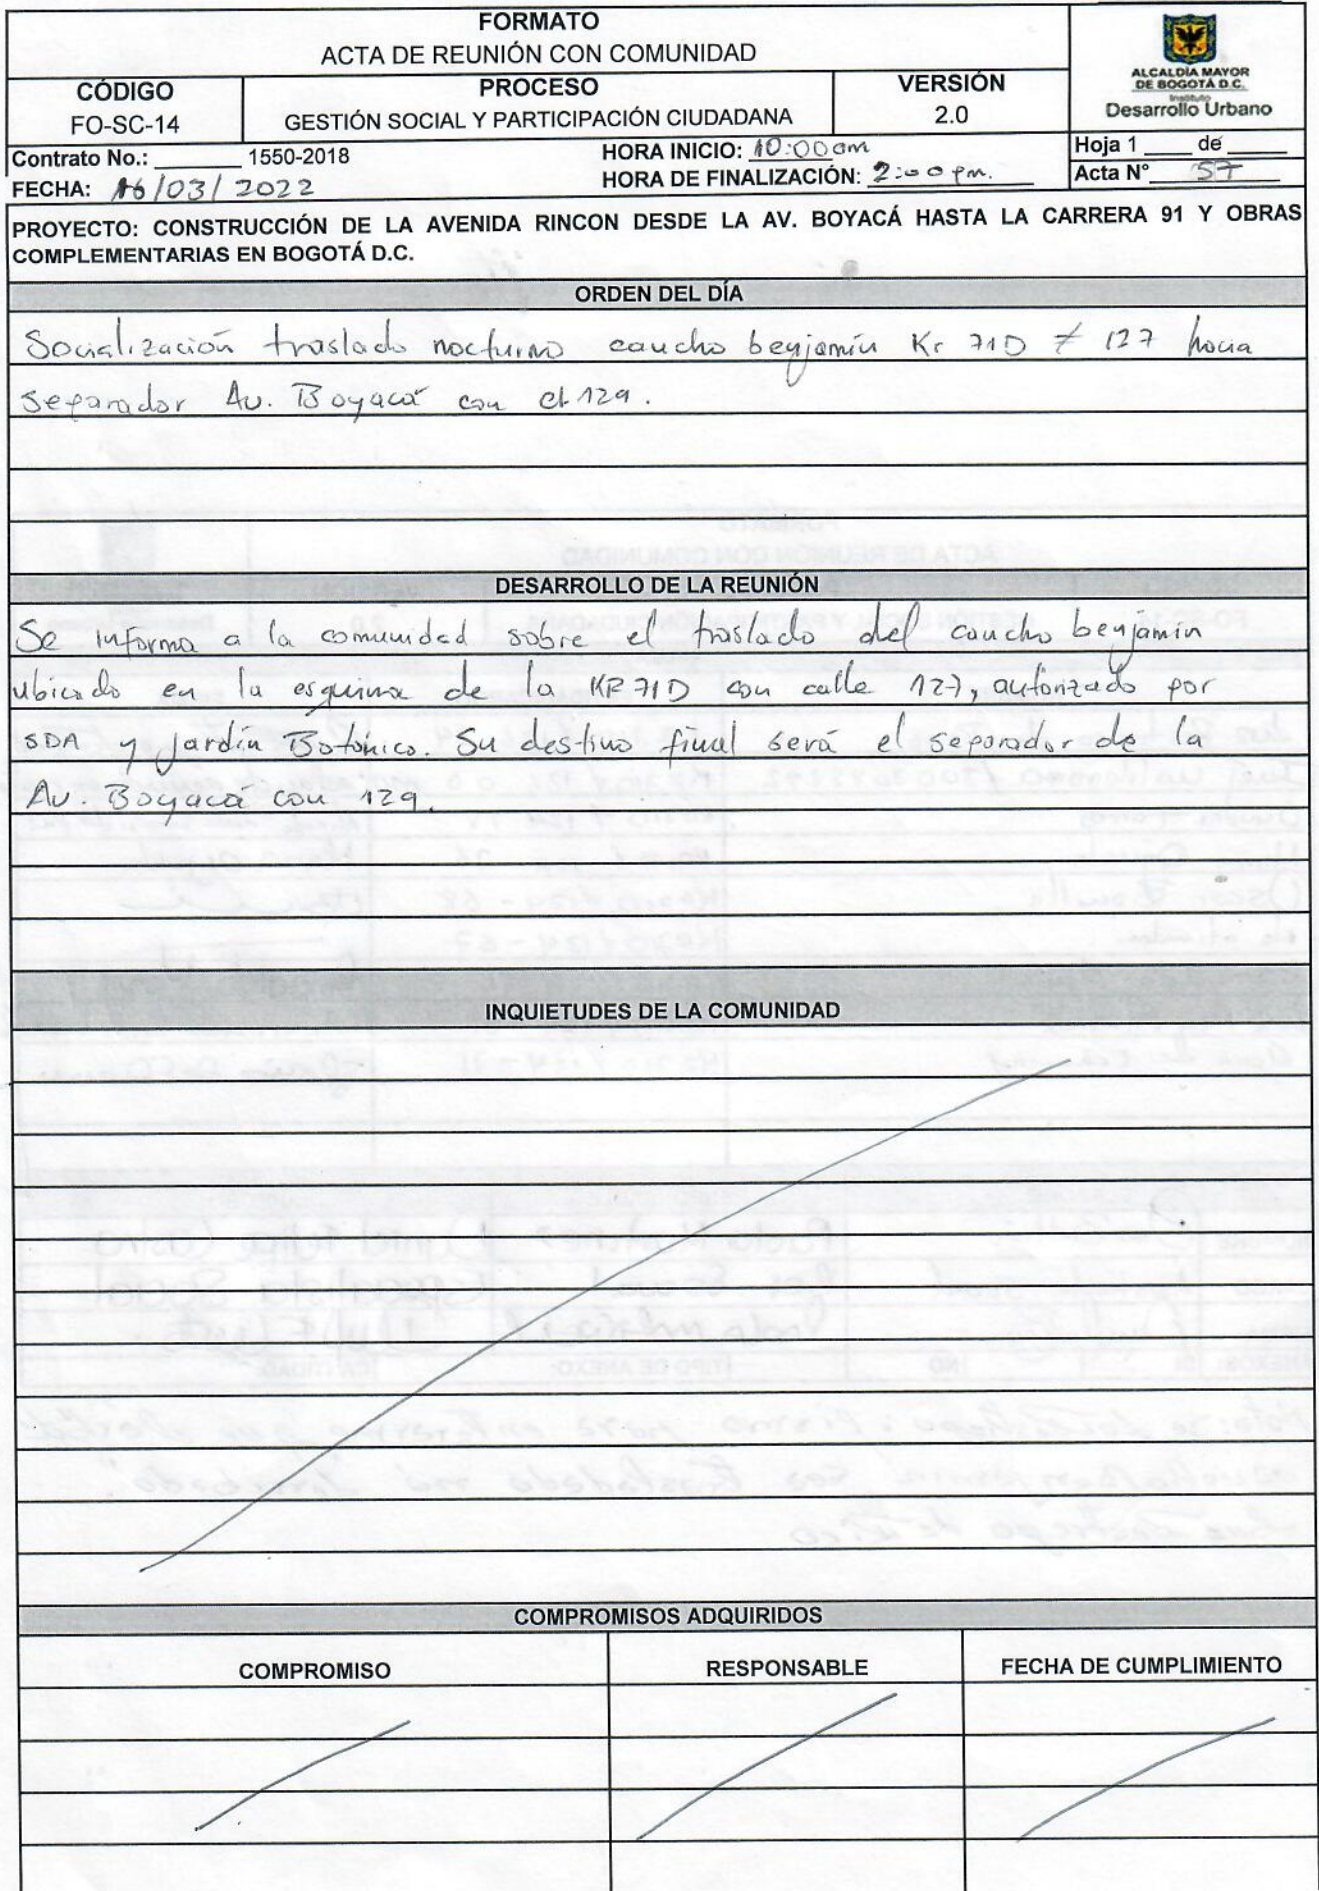 FORMATO
ACTA DE REUNIÓN CON COMUNIDAD
CÓDIGO
FO-SC-14
PROCESO
GESTIÓN SOCIAL Y PARTICIPACIÓN CIUDADANA
VERSIÓN
2.0
ALCALDÍA MAYOR
DE BOGOTÁ D.C.
Instituto
Desarrollo Urbano
Contrato No.: 1550-2018
HORA INICIO: 10:00am
Hoja 1 de
FECHA: 16/03/2022
HORA DE FINALIZACIÓN: 2:00 pm.
Acta N° 57
PROYECTO: CONSTRUCCIÓN DE LA AVENIDA RINCON DESDE LA AV. BOYACÁ HASTA LA CARRERA 91 Y OBRAS
COMPLEMENTARIAS EN BOGOTÁ D.C.
ORDEN DEL DÍA
Socialización traslado nocturno caucho benjamín Kr 71D # 127 hacia
separador Av. Boyacá con cl 129.
DESARROLLO DE LA REUNIÓN
Se informa a la comunidad sobre el traslado del caucho benjamín
ubicado en la esquina de la KR 71D con calle 127, autorizado por
SDA y Jardín Botánico. Su destino final será el separador de la
Av. Boyacá con 129.
INQUIETUDES DE LA COMUNIDAD
COMPROMISOS ADQUIRIDOS
COMPROMISO
RESPONSABLE
FECHA DE CUMPLIMIENTO